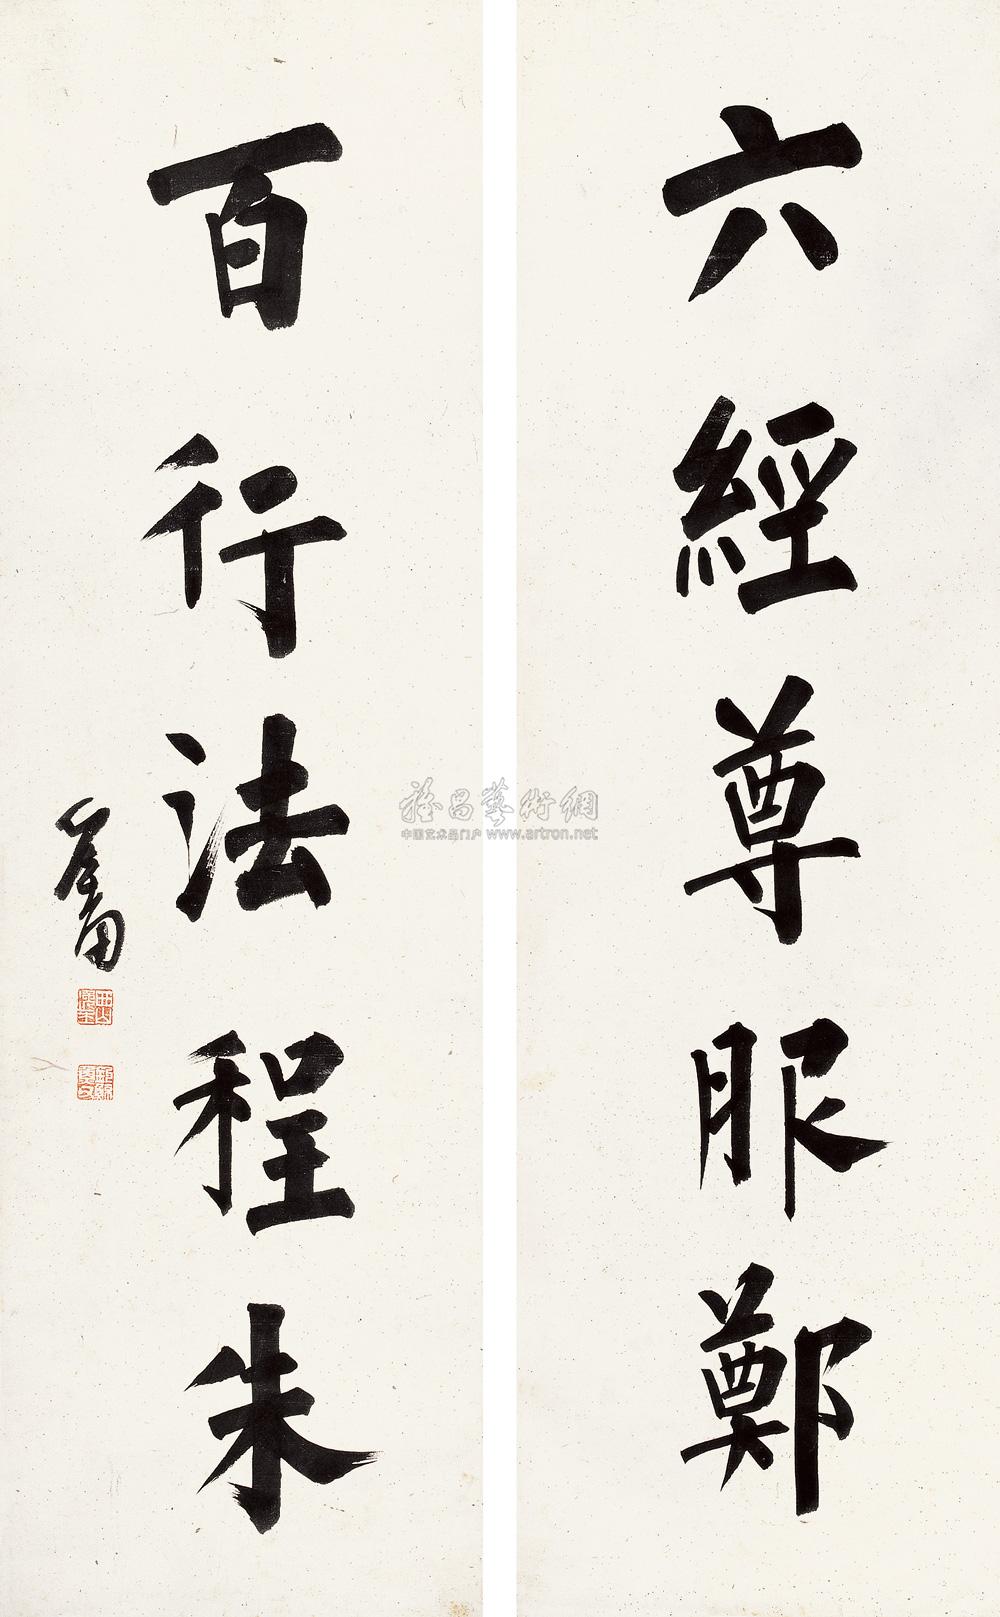 六經尊服鄭
百行法程朱
雅昌藝術網
中国艺术品门户 www.artron.net